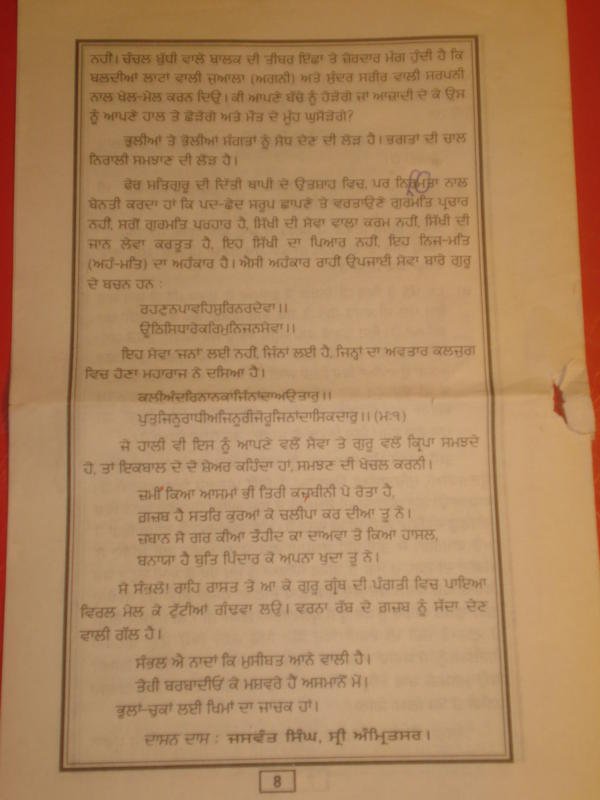 ਨਹੀਂ। ਚੰਚਲ ਬੁੱਧੀ ਵਾਲੇ ਬਾਲਕ ਦੀ ਤੀਬਰ ਇੱਛਾ ਤੇ ਜ਼ੋਰਦਾਰ ਮੰਗ ਹੁੰਦੀ ਹੈ ਕਿ
ਬਲਦੀਆਂ ਲਾਟਾਂ ਵਾਲੀ ਜੁਆਲਾ (ਅਗਨੀ) ਅਤੇ ਸੁੰਦਰ ਸਰੀਰ ਵਾਲੀ ਸਰਪਨੀ
ਨਾਲ ਖੇਲ-ਮੇਲ ਕਰਨ ਦਿਉ। ਕੀ ਆਪਣੇ ਬੱਚੇ ਨੂੰ ਹੋੜੋਗੇ ਜਾਂ ਆਜ਼ਾਦੀ ਦੇ ਕੇ ਉਸ
ਨੂੰ ਆਪਣੇ ਹਾਲ ਤੇ ਛੋੜੋਗੇ ਅਤੇ ਮੌਤ ਦੇ ਮੂੰਹ ਘੁਸੇੜੋਗੇ?
ਭੁਲੀਆਂ ਤੇ ਭੋਲੀਆਂ ਸੰਗਤਾਂ ਨੂੰ ਸੇਧ ਦੇਣ ਦੀ ਲੋੜ ਹੈ। ਭਗਤਾਂ ਦੀ ਚਾਲ
ਨਿਰਾਲੀ ਸਮਝਾਣ ਦੀ ਲੋੜ ਹੈ।
ਫੇਰ ਸਤਿਗੁਰੂ ਦੀ ਦਿੱਤੀ ਥਾਪੀ ਦੇ ਉਤਸ਼ਾਹ ਵਿਚ, ਪਰ ਨਿਮ੍ਰਤਾ ਨਾਲ
ਬੇਨਤੀ ਕਰਦਾ ਹਾਂ ਕਿ ਪਦ-ਛੇਦ ਸਰੂਪ ਛਾਪਣੇ ਤੇ ਵਰਤਾਉਣੇ ਗੁਰਮਤਿ ਪ੍ਰਚਾਰ
ਨਹੀਂ, ਸਗੋਂ ਗੁਰਮਤਿ ਪਰਹਾਰ ਹੈ, ਸਿੱਖੀ ਦੀ ਸੇਵਾ ਵਾਲਾ ਕਰਮ ਨਹੀਂ, ਸਿੱਖੀ ਦੀ
ਜਾਨ ਲੇਵਾ ਕਰਤੂਤ ਹੈ, ਇਹ ਸਿੱਖੀ ਦਾ ਪਿਆਰ ਨਹੀਂ, ਇਹ ਨਿਜ-ਮਤਿ
(ਅਹੰ-ਮਤਿ) ਦਾ ਅਹੰਕਾਰ ਹੈ। ਐਸੀ ਅਹੰਕਾਰ ਰਾਹੀਂ ਉਪਜਾਈ ਸੇਵਾ ਬਾਰੇ ਗੁਰੂ
ਦੇ ਬਚਨ ਹਨ :
ਰਹਣੁਨਪਾਵਹਿਸੁਰਿਨਰਦੇਵਾ।।
ਊਠਿਸਿਧਾਰੇਕਰਿਮੁਨਿਜਨਸੇਵਾ।।
ਇਹ ਸੇਵਾ 'ਜਨਾਂ' ਲਈ ਨਹੀਂ, ਜਿੰਨਾਂ ਲਈ ਹੈ, ਜਿਨ੍ਹਾਂ ਦਾ ਅਵਤਾਰ ਕਲਜੁਗ
ਵਿਚ ਹੋਣਾ ਮਹਾਰਾਜ ਨੇ ਦਸਿਆ ਹੈ।
ਕਲੀਅੰਦਰਿਨਾਨਕਾਜਿੰਨਾਂਦਾਅਉਤਾਰੁ।।
ਪੁਤੁਜਿਨੂਰਾਧੀਅਜਿਨੂਰੀਜੋਰੂਜਿੰਨਾਂਦਾਸਿਕਦਾਰੁ।। (ਮਃ੧)
ਜੇ ਹਾਲੀ ਵੀ ਇਸ ਨੂੰ ਆਪਣੇ ਵਲੋਂ ਸੇਵਾ ਤੇ ਗੁਰੂ ਵਲੋਂ ਕ੍ਰਿਪਾ ਸਮਝਦੇ
ਹੋ, ਤਾਂ ਇਕਬਾਲ ਦੇ ਦੋ ਸ਼ੇਅਰ ਕਹਿੰਦਾ ਹਾਂ, ਸਮਝਣ ਦੀ ਖੇਚਲ ਕਰਨੀ।
ਜ਼ਮੀਂ ਕਿਆ ਆਸਮਾਂ ਭੀ ਤਿਰੀ ਕਜਬੀਨੀ ਪੇ ਰੋਤਾ ਹੈ,
ਗ਼ਜ਼ਬ ਹੈ ਸਤਰਿ ਕੁਰਆਂ ਕੋ ਚਲੀਪਾ ਕਰ ਦੀਆ ਤੂ ਨੇ।
ਜ਼ਬਾਨ ਸੇ ਗਰ ਕੀਆ ਤੌਹੀਦ ਕਾ ਦਾਅਵਾ ਤੋ ਕਿਆ ਹਾਸਲ,
ਬਨਾਯਾ ਹੈ ਬੁਤਿ ਪਿੰਦਾਰ ਕੋ ਅਪਨਾ ਖੁਦਾ ਤੂ ਨੇ।
ਸੋ ਸੰਤਲੋ! ਰਾਹਿ ਰਾਸਤ ਤੇ ਆ ਕੇ ਗੁਰੂ ਗ੍ਰੰਥ ਦੀ ਪੰਗਤੀ ਵਿਚ ਪਾਇਆ
ਵਿਰਲ ਮੇਲ ਕੇ ਟੁੱਟੀਆਂ ਗੰਢਵਾ ਲਉ। ਵਰਨਾ ਰੱਬ ਦੇ ਗ਼ਜ਼ਬ ਨੂੰ ਸੱਦਾ ਦੇਣ
ਵਾਲੀ ਗੱਲ ਹੈ।
ਸੰਭਲ ਐ ਨਾਦਾਂ ਕਿ ਮੁਸੀਬਤ ਆਨੇ ਵਾਲੀ ਹੈ।
ਤੇਰੀ ਬਰਬਾਦੀਓਂ ਕੇ ਮਸ਼ਵਰੇ ਹੈਂ ਅਸਮਾਨੋਂ ਮੇਂ।
ਭੁਲਾਂ-ਚੁਕਾਂ ਲਈ ਖਿਮਾਂ ਦਾ ਜਾਚਕ ਹਾਂ।
ਦਾਸਨ ਦਾਸ : ਜਸਵੰਤ ਸਿੰਘ, ਸ੍ਰੀ ਅੰਮ੍ਰਿਤਸਰ।
8